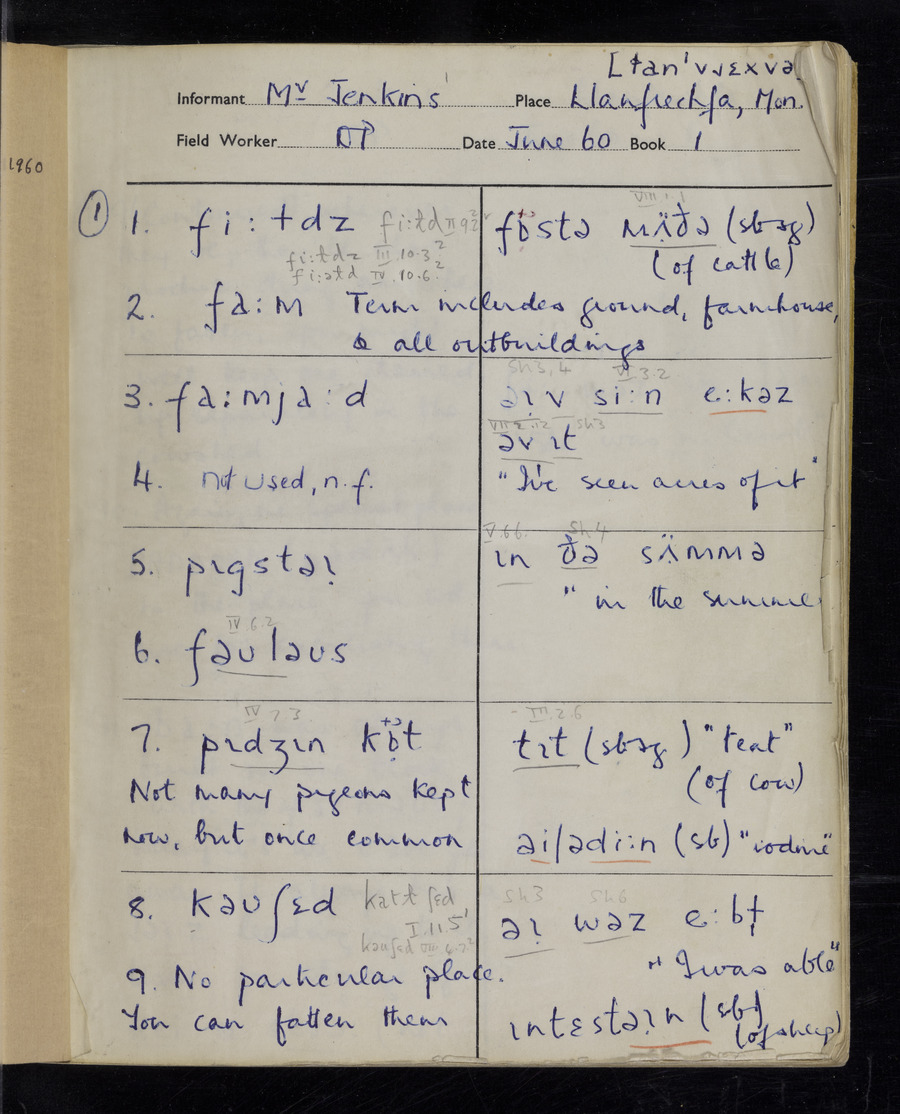 [ɬanˈvɹɛxvə]
Informant Mr Jenkins Place Llanfrechfa, Mon.
Field Worker DP Date June 60 Book 1
1960
① 1. fi:ɫdz fi:ɫd II 9 2
fi:ɫdz III.10.3?
fi:əɫd IV.10.6?
2. fa:m Term includes ground, farmhouse,
& all outbuildings
3. fa:mja:d
4. not used, n.f.
5. pɪgstəɪ
IV.6.2
6. fəulaus
IV 7 3
7. pɪdʒɪn kɒt
Not many pigeons kept
now, but once common
8. kəuʃɛd
I.11.5
9. No particular place.
You can fatten them
VIII.1.1
fɒstə mʌ̈ðə (sb sg)
(of cattle)
Sh3,4 VI.3.2
əɪv si:n e:kəz
VII.2.12 Sh3
əv ɪt
"I've seen acres of it"
V.6.6. Sh.4
ɪn ðə sʌ̈mmə
"in the summer
III.2.6
tɪt (sb sg) "teat"
(of cow)
aɪədi:n (sb) "iodine"
Sh3 Sh6
əɪ wəz e:bɫ
"I was able"
ɪntɛstəɪn (sb)
(of sheep)